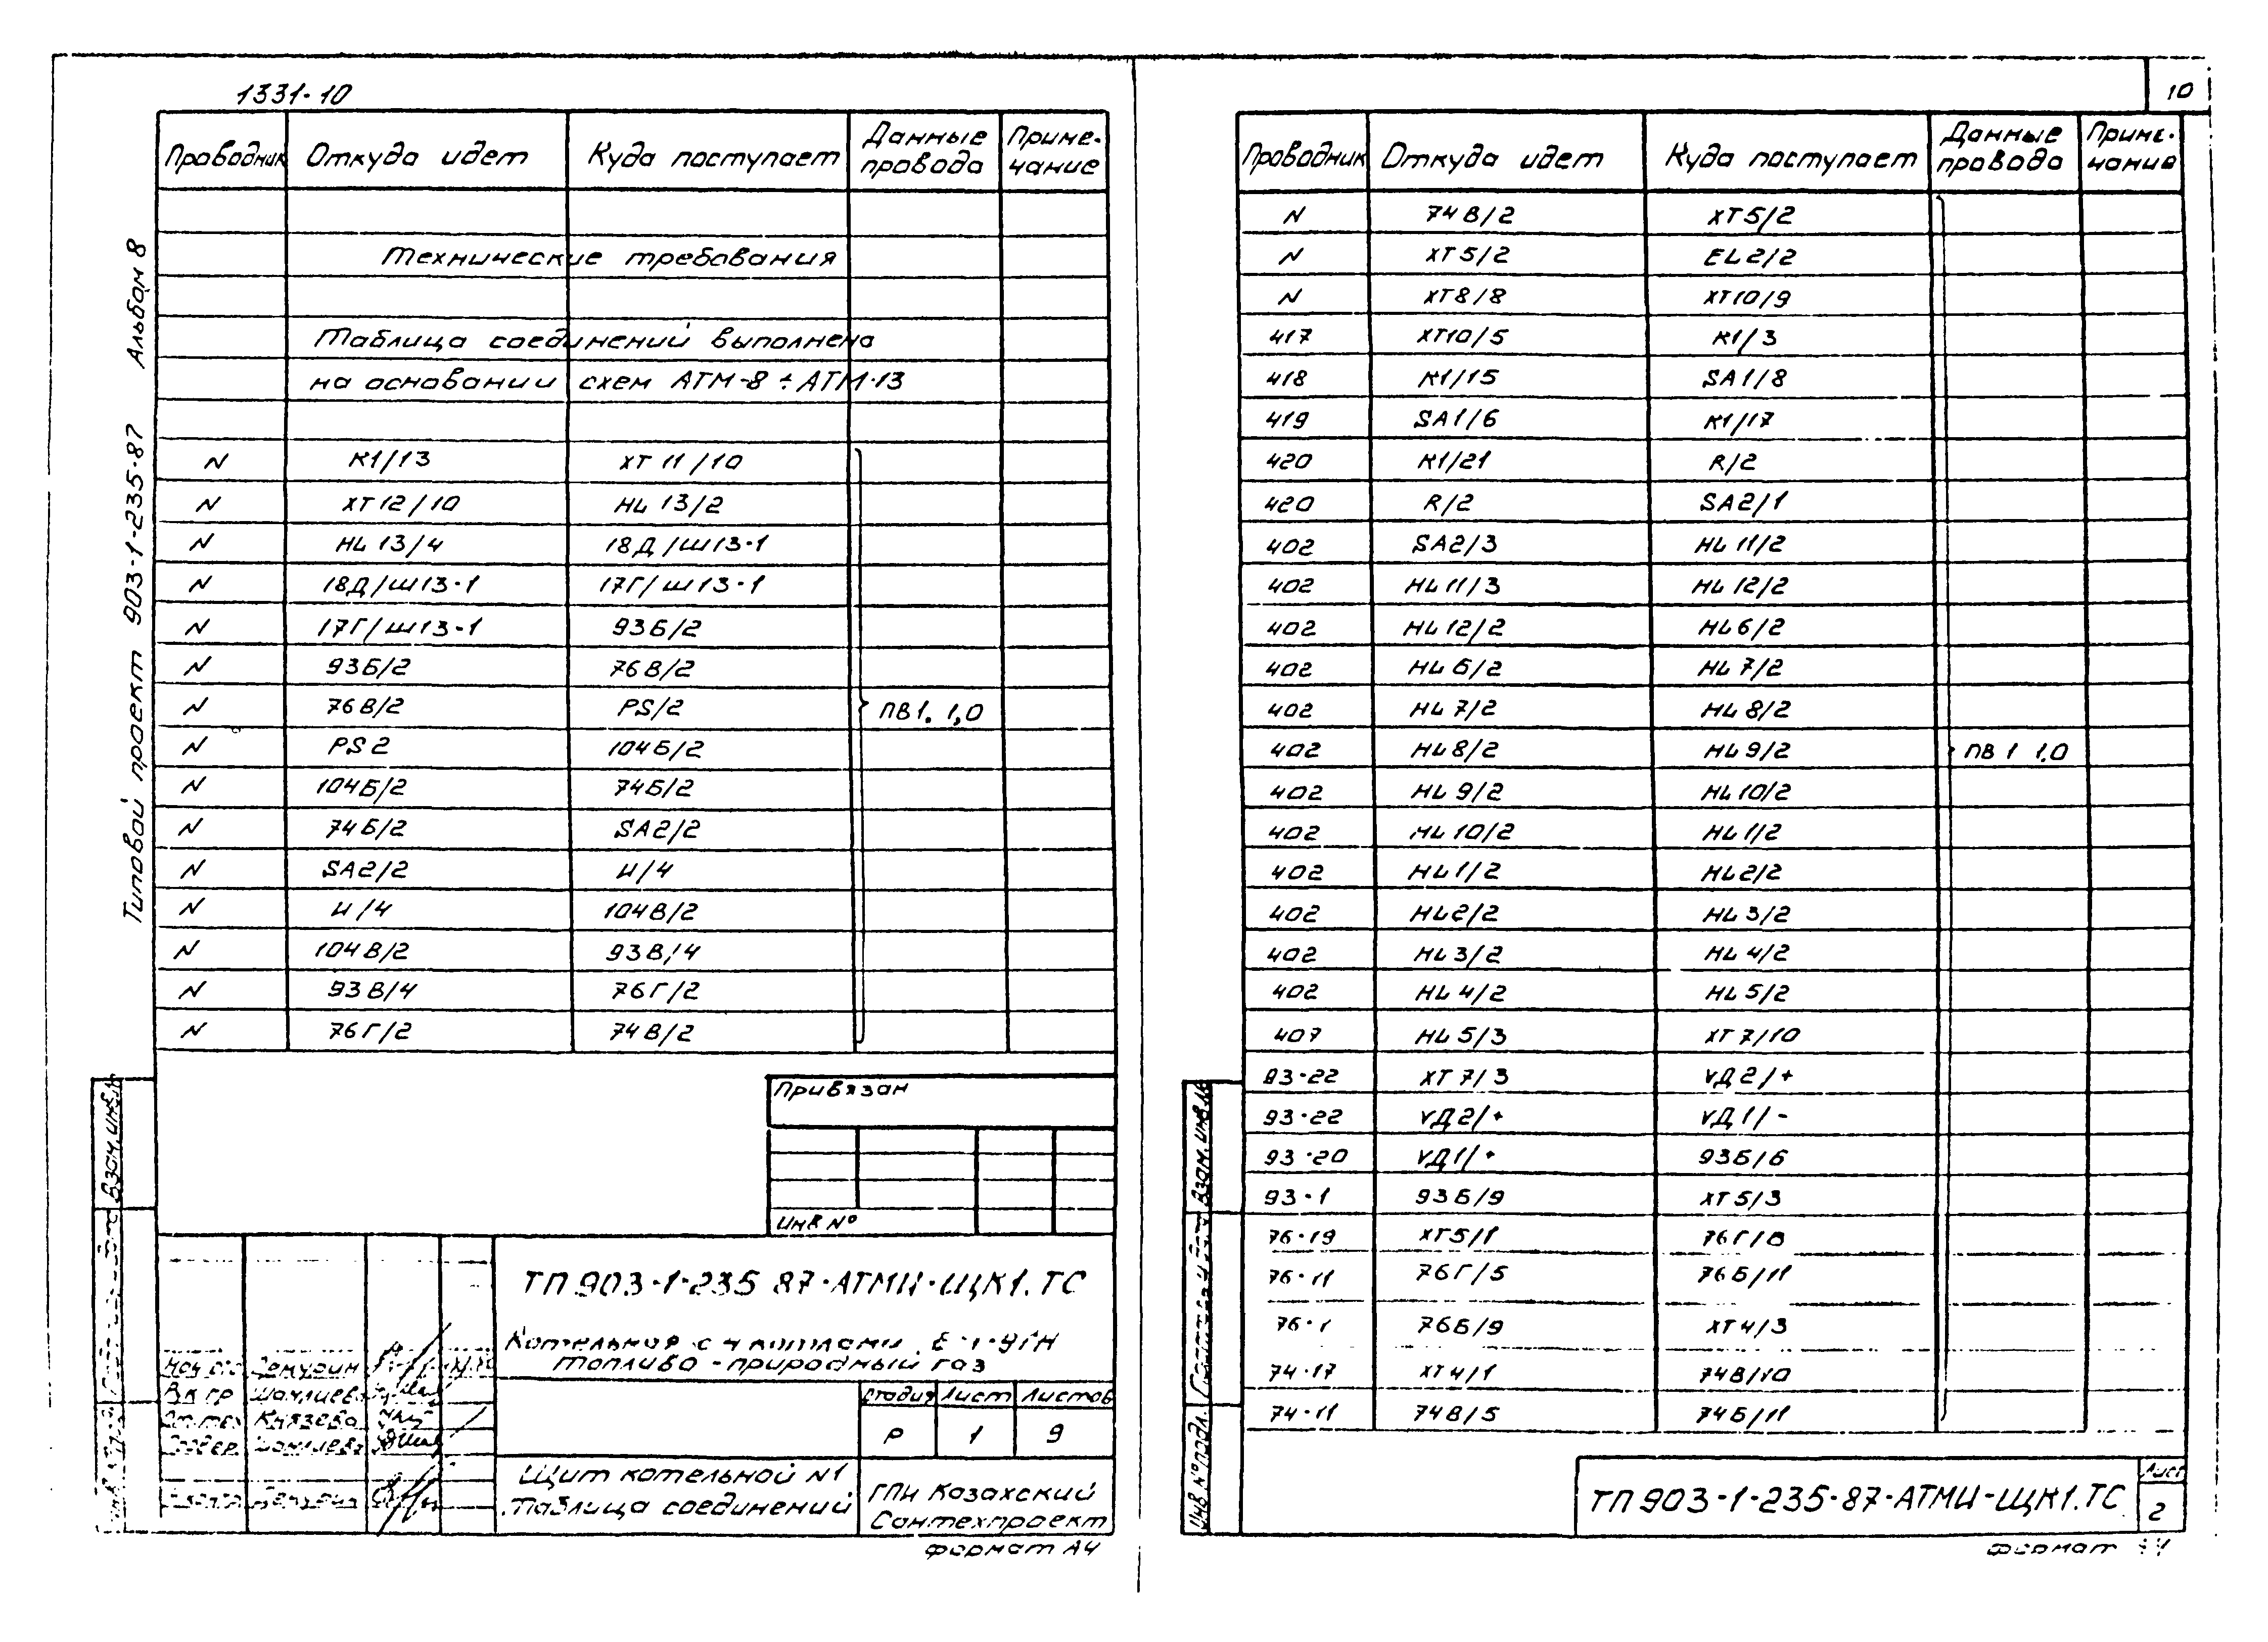 1331-10
Альбом 8
Типовой проект 903-1-235-87
Проводник Откуда идет Куда поступает Данные провода Приме-чание
Технические требования
Таблица соединений выполнена
на основании схем АТМ-8 ÷ АТМ-13
N К1/13 ХТ 11/10
N ХТ 12/10 HL 13/2
N HL 13/4 18Д/Ш13-1
N 18Д/Ш13-1 17Г/Ш13-1
N 17Г/Ш13-1 93Б/2
N 93Б/2 76В/2
N 76В/2 PS/2 ПВ1. 1,0
N PS 2 104Б/2
N 104Б/2 74Б/2
N 74Б/2 SA2/2
N SA2/2 И/4
N И/4 104В/2
N 104В/2 93В/4
N 93В/4 76Г/2
N 76Г/2 74В/2
Привязан
Инв №
ТП 903-1-235 87-АТМИ-ЩК1.ТС
Котельная с 4 котлами Е-1-9ГН
топливо - природный газ
Стадия Лист Листов
Р 1 9
Щит котельной N1
Таблица соединений
ГПИ Казахский
Сантехпроект
Формат А4
Взам. инв. №
10
Проводник Откуда идет Куда поступает Данные провода Приме-чание
N 74В/2 ХТ5/2
N ХТ5/2 EL2/2
N ХТ8/8 ХТ10/9
417 ХТ10/5 К1/3
418 К1/15 SA1/8
419 SA1/6 К1/17
420 К1/21 R/2
420 R/2 SA2/1
402 SA2/3 HL 11/2
402 HL 11/3 HL 12/2
402 HL 12/2 HL6/2
402 HL 6/2 HL 7/2
402 HL 7/2 HL 8/2
402 HL 8/2 HL 9/2 ПВ 1 1,0
402 HL 9/2 HL 10/2
402 HL 10/2 HL 1/2
402 HL 1/2 HL2/2
402 HL2/2 HL 3/2
402 HL 3/2 HL 4/2
402 HL 4/2 HL 5/2
407 HL 5/3 ХТ 7/10
93-22 ХТ 7/3 VД2/+
93-22 VД2/+ VД1/-
93-20 VД1/+ 93Б/6
93-1 93Б/9 ХТ5/3
76-19 ХТ5/1 76Г/8
76-11 76Г/5 76Б/11
76-1 76Б/9 ХТ4/3
74-17 ХТ4/1 74В/10
74-11 74В/5 74Б/11
Взам. инв. №
Инв № подл.
ТП 903-1-235-87-АТМИ-ЩК1.ТС
Лист
2
Формат